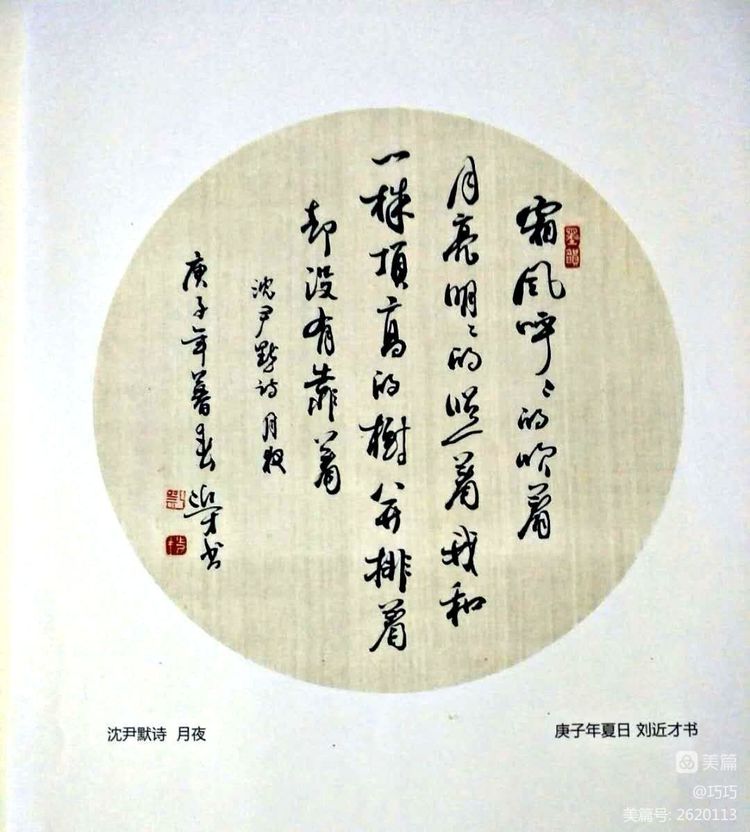 霜风呼〻的吹着
月亮明〻的照着我和
一株頂高的樹并排着
却没有靠着
沈尹默诗月夜
庚子年暮春近才书
沈尹默诗 月夜
庚子年夏日 刘近才书
美篇
@巧巧
美篇号: 2620113